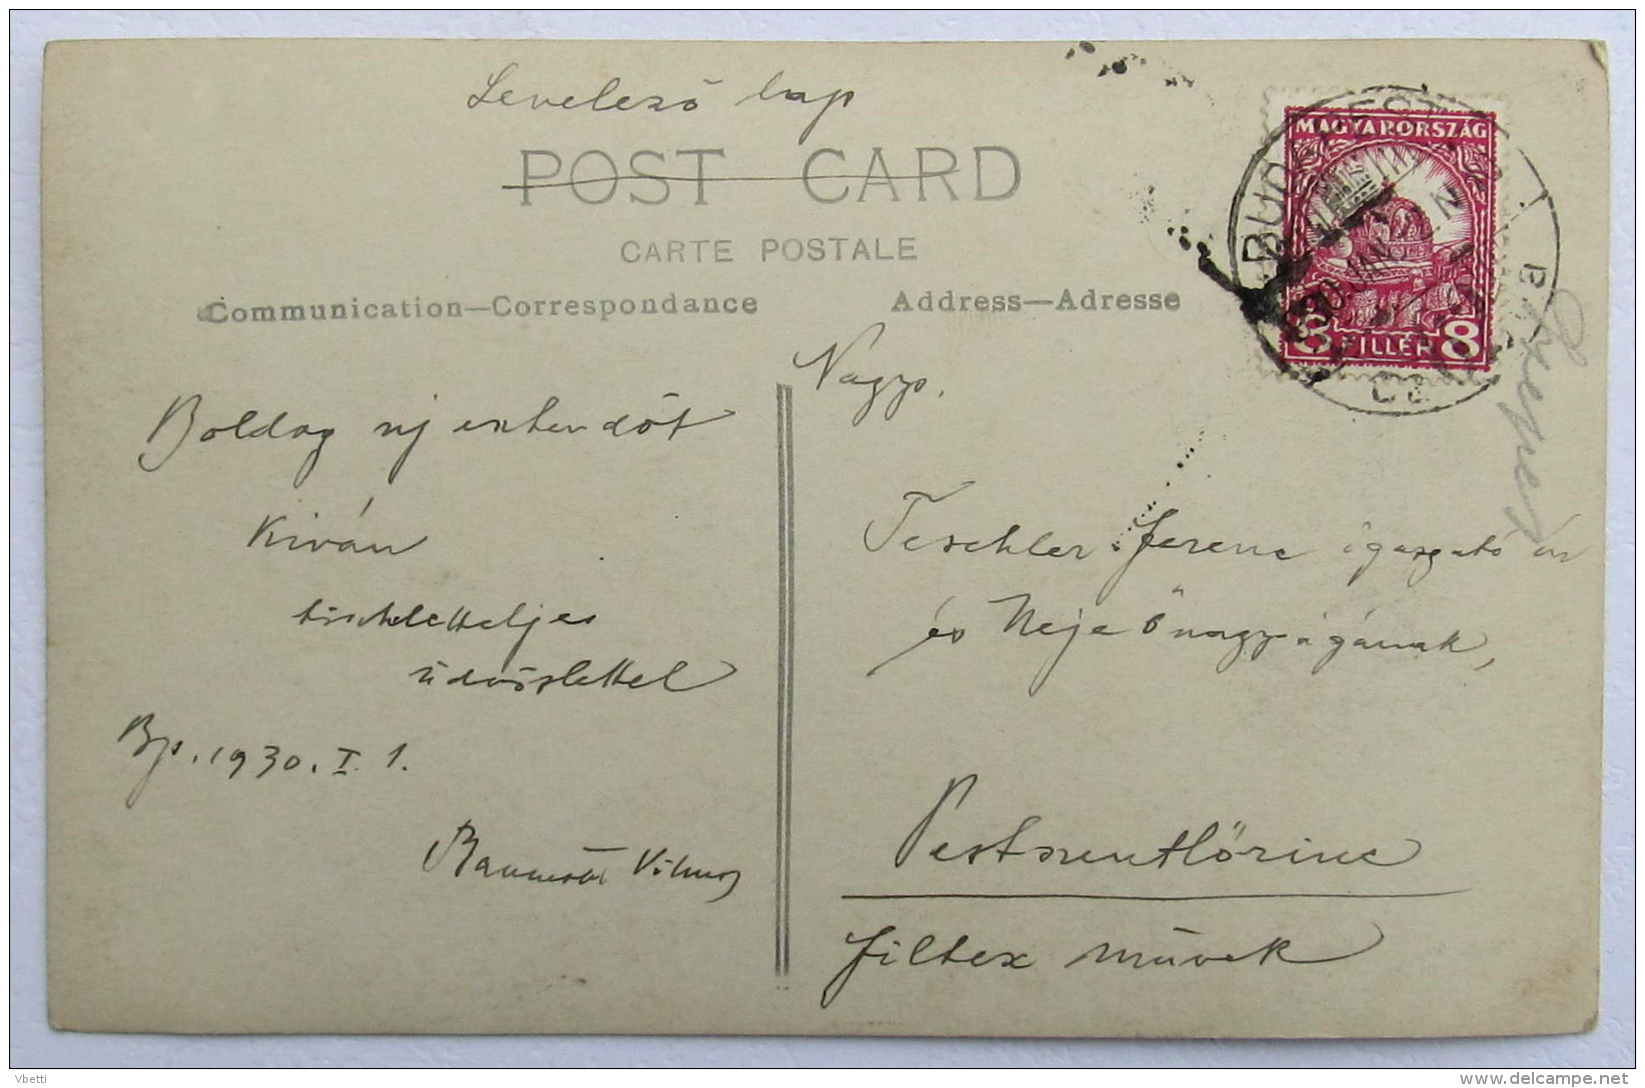 Levelező lap
POST CARD
CARTE POSTALE
Communication—Correspondance
Address—Adresse
MAGYARORSZÁG
8 FILLÉR 8
BUDAPEST
930 JAN
Nagys.
Boldog uj esztendőt
Kiván
tiszteletteljes
üdvözlettel
Bp. 1930. I. 1.
Vilmos
Teschler Ferenc igazgató úr
és Neje Őnagyságának,
Pestszentlőrinc
Filtex művek
Vbetti
www.delcampe.net